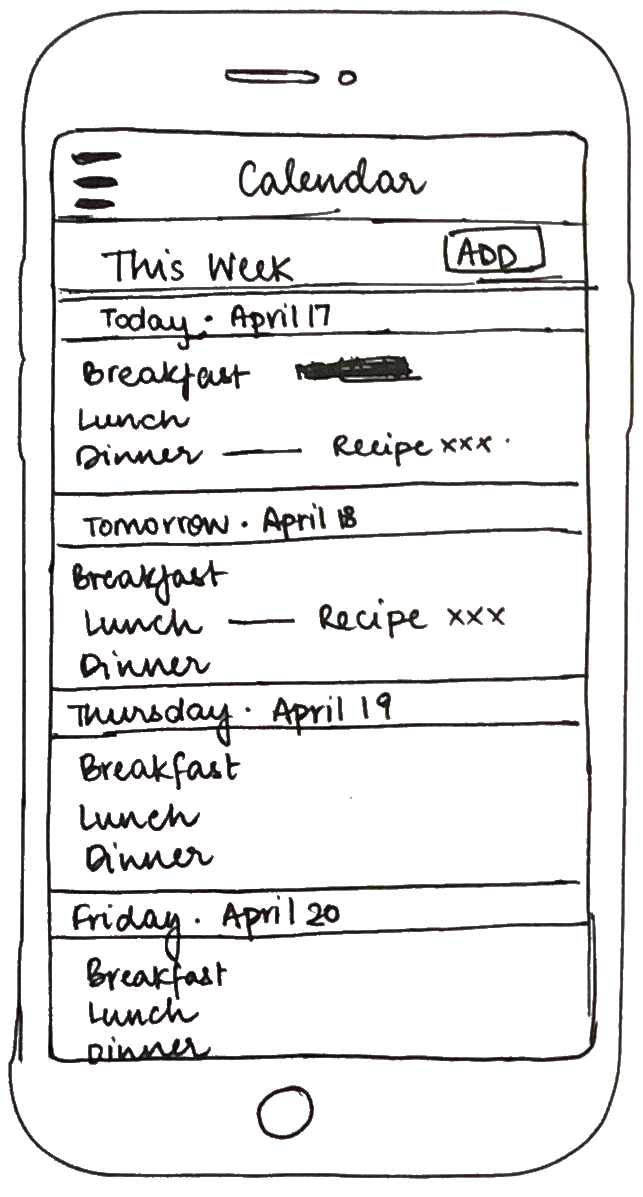 Calendar
This Week ADD
Today · April 17
Breakfast
Lunch
Dinner — Recipe xxx ·
Tomorrow · April 18
Breakfast
Lunch — Recipe xxx
Dinner
Thursday · April 19
Breakfast
Lunch
Dinner
Friday · April 20
Breakfast
Lunch
Dinner